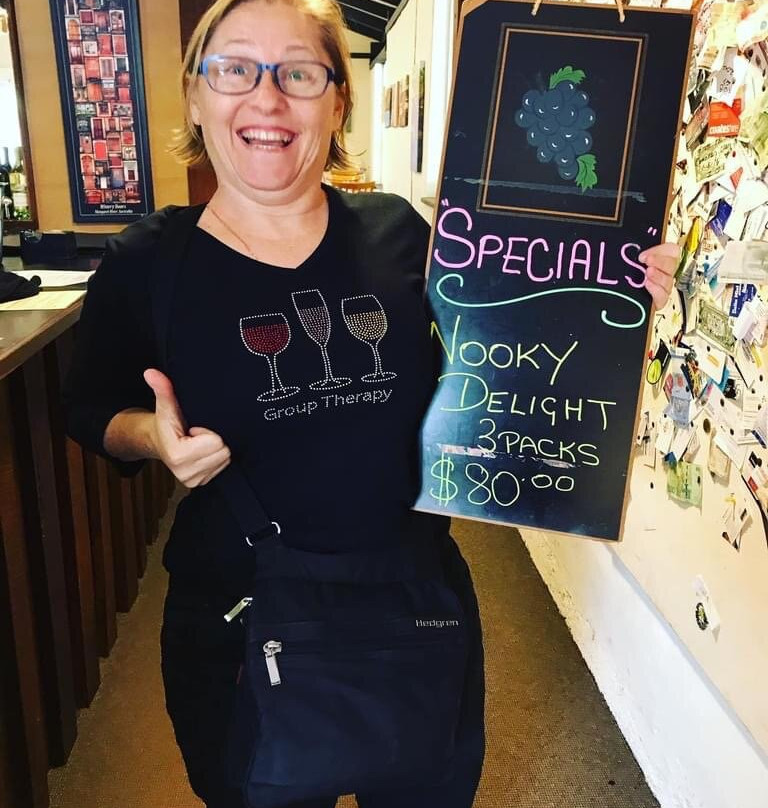 Winery Doors
Margaret River Australia
"SPECIALS"
NOOKY
DELIGHT
3 PACKS
$80.00
Group Therapy
Hedgren